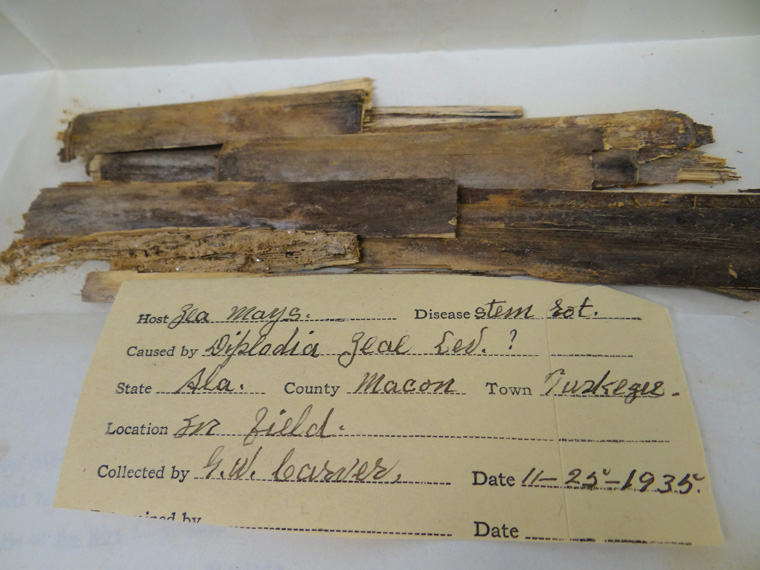 Host Zea mays. Disease stem rot.
Caused by Diplodia Zeae Lev. ?
State Ala. County Macon Town Tuskegee.
Location In field.
Collected by G.W. Carver, Date 11-25-1935.
Date